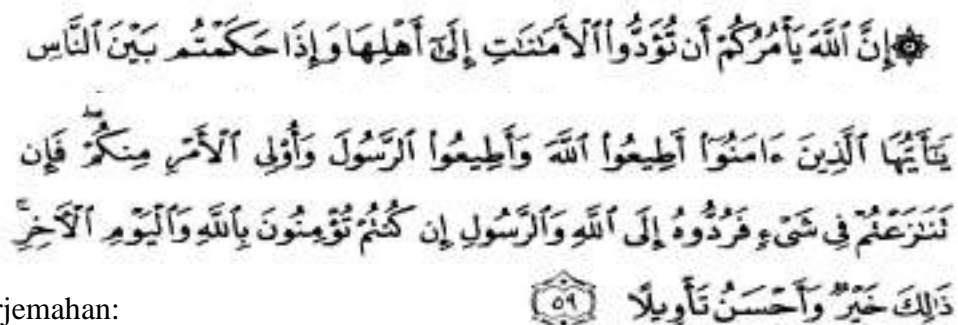 ۞إِنَّ ٱللَّهَ يَأۡمُرُكُمۡ أَن تُؤَدُّواْ ٱلۡأَمَٰنَٰتِ إِلَىٰٓ أَهۡلِهَا وَإِذَا حَكَمۡتُم بَيۡنَ ٱلنَّاسِ
يَٰٓأَيُّهَا ٱلَّذِينَ ءَامَنُوٓاْ أَطِيعُواْ ٱللَّهَ وَأَطِيعُواْ ٱلرَّسُولَ وَأُوْلِي ٱلۡأَمۡرِ مِنكُمۡۖ فَإِن
تَنَٰزَعۡتُمۡ فِي شَيۡءٖ فَرُدُّوهُ إِلَى ٱللَّهِ وَٱلرَّسُولِ إِن كُنتُمۡ تُؤۡمِنُونَ بِٱللَّهِ وَٱلۡيَوۡمِ ٱلۡأٓخِرِۚ
ذَٰلِكَ خَيۡرٞ وَأَحۡسَنُ تَأۡوِيلًا ٥٩
rjemahan: